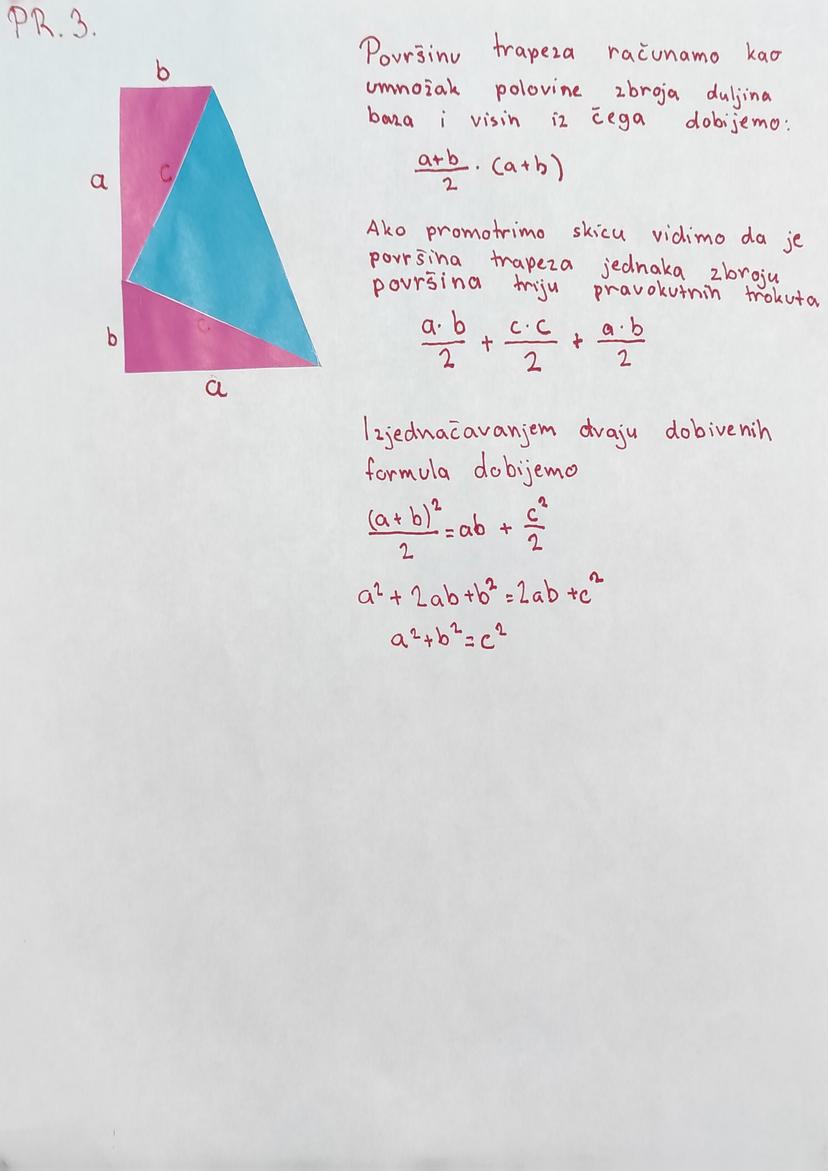 PR. 3.
b
a
c
b
c
a
Površinu trapeza računamo kao
umnožak polovine zbroja duljina
baza i visin iz čega dobijemo:
a+b/2 · (a+b)
Ako promotrimo skicu vidimo da je
površina trapeza jednaka zbroju
površina triju pravokutnih trokuta
a·b/2 + c·c/2 + a·b/2
Izjednačavanjem dvaju dobivenih
formula dobijemo
(a+b)²/2 = ab + c²/2
a² + 2ab + b² = 2ab + c²
a² + b² = c²